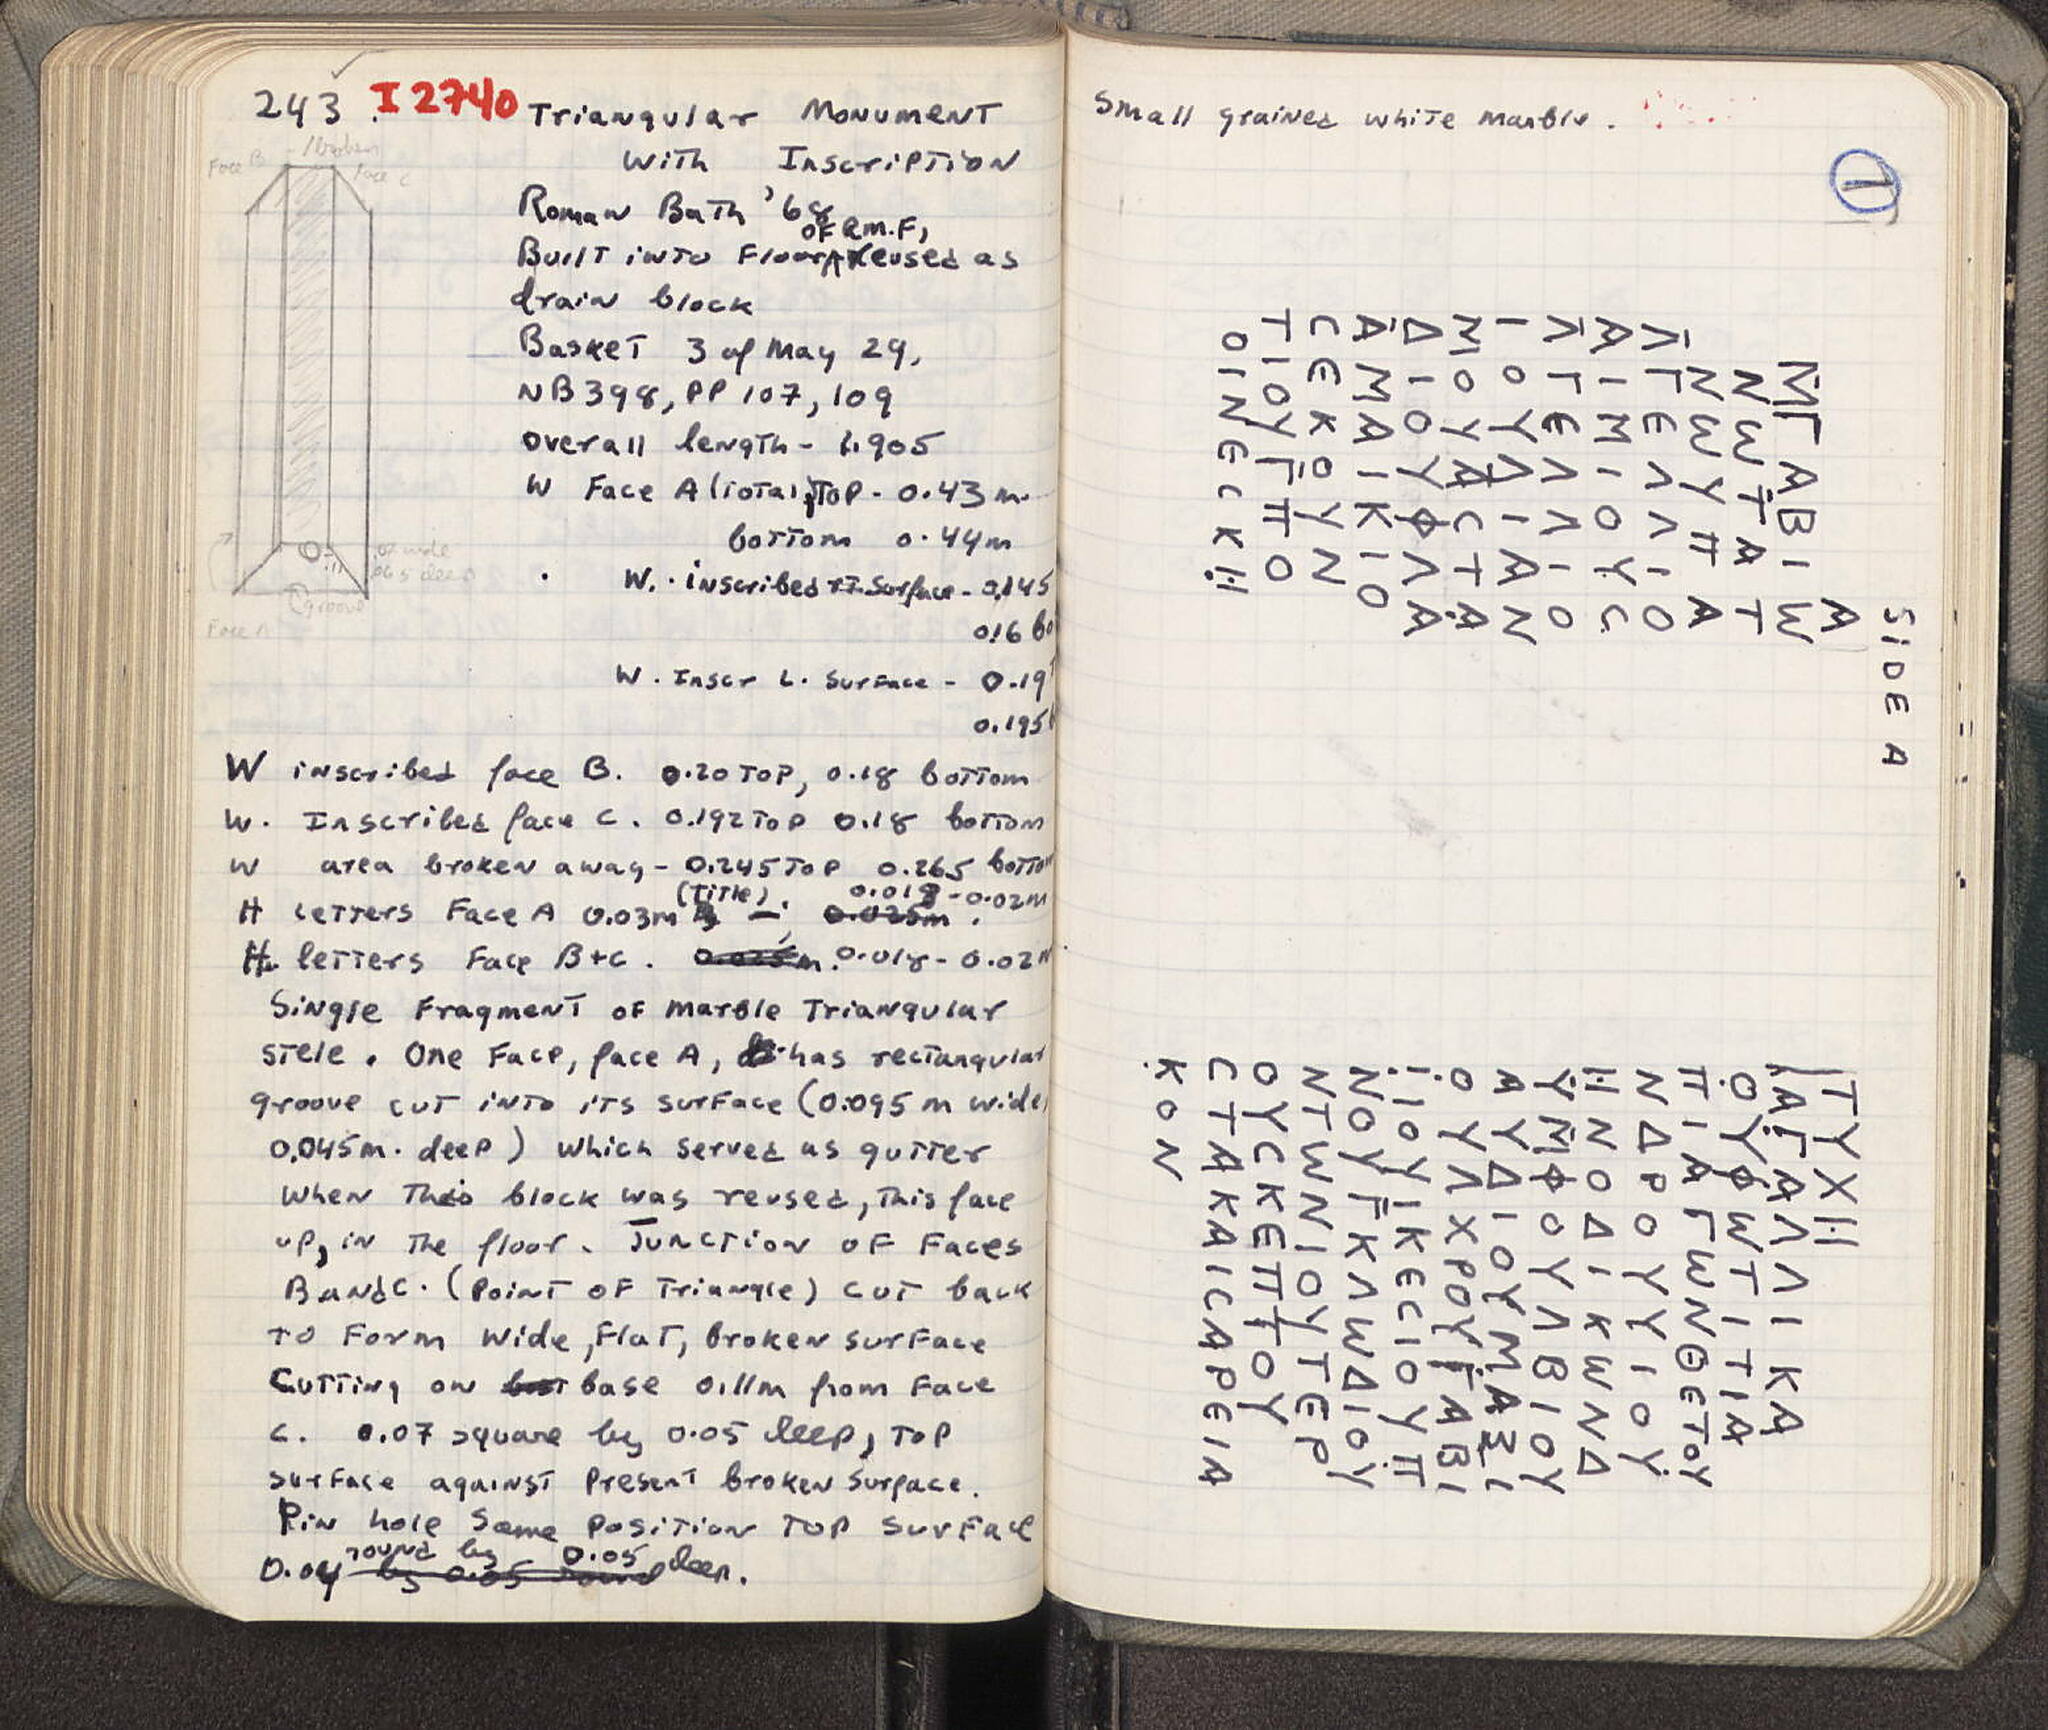 243. I 2740 Triangular Monument
With Inscription
Roman Bath '68
Built into Floor of R.M.F, reused as
drain block
Basket 3 of May 29,
NB 398, PP 107, 109
overall length - 1.905
W Face A (total) Top - 0.43 m.
bottom 0.44m
W. inscribed rt. Surface - 0.145
0.16 bo
W. Inscr L. Surface - 0.19
0.195
W inscribed face B. 0.20 Top, 0.18 bottom
W. Inscribed face C. 0.192 Top 0.18 bottom
W area broken away - 0.245 Top 0.265 bottom
H letters Face A 0.03m (Title). 0.018 - 0.02m
H letters Face B+C. 0.018 - 0.02m
Single Fragment of Marble Triangular
stele. One Face, face A, has rectangular
groove cut into its surface (0.095 m wide,
0.045m. deep) which served as gutter
when this block was reused, this face
up, in the floor. Junction of Faces
B and C. (Point of Triangle) cut back
to form wide, flat, broken surface
Cutting on base 0.11m from Face
C. 0.07 square by 0.05 deep, top
surface against present broken surface.
Pin hole same position top surface
0.04 round by 0.05 deep.
Face B
broken
Face C
.07 wide
.065 deep
.11
groove
Face A
Small grained white marble.
1
SIDE A
Α
ΜΓΑΒΙΩ
ΝΩΤΑΤ
ΝΩΥΠΑ
ΛΓΕΛΛΙΟ
ΑΙΜΙΟΥC
ΛΓΕΛΛΙΟ
ΙΟΥΛΙΑΝ
ΜΟΥΑCΤΑ
ΔΙΟΥΦΛΑ
ΑΜΑΙΚΙΟ
CΕΚΟΥΝ
ΤΙΟΥΓΠΟ
ΟΙΝΕCΚΗ
ΤΥΧΗ
ΚΑΓΑΛΛΙΚΑ
ΟΥΦΩΤΙΤΙΑ
ΠΙΑΓΩΝΘΕΤΟΥ
ΝΔΡΟΥΥΙΟΥ
ΗΝΟΔΙΚΩΝΔ
ΥΜΦΟΥΛΒΙΟΥ
ΑΥΔΙΟΥΜΑΞΙ
ΟΥΛΧΡΟΥΓΑΒΙ
ΙΙΟΥΙΚΕCΙΟΥΠ
ΝΟΥΓΚΛΩΔΙΟΥ
ΝΤΩΝΙΟΥΤΕΡ
ΟΥCΚΕΠΠΟΥ
CΤΑΚΑΙCΑΡΕΙΑ
ΚΟΝ